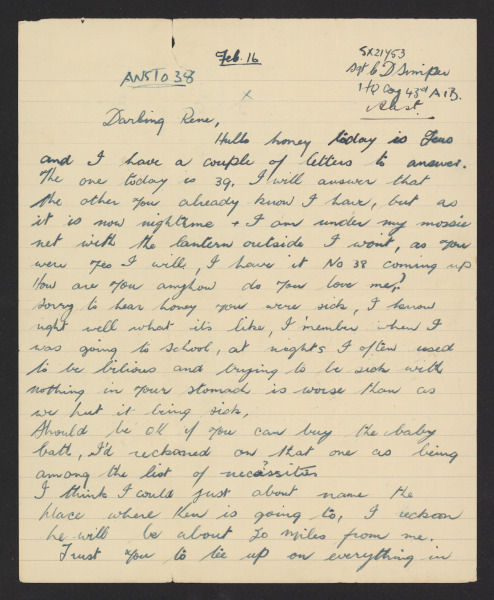 Feb. 16
SX21453
Sgt C D Simper
HQ Coy 43rd A.I.B.
Aust.
ANS TO 38
x
Darling Rene,
Hullo honey today is Tues
and I have a couple of letters to answer.
The one today is 39. I will answer that
the other you already know I have, but as
it is now nightime + I am under my mossie
net with the lantern outside I won't, as you
were yes I will, I have it No 38 coming up
How are you anyhow do you love me?
Sorry to hear honey you were sick, I know
right well what it's like, I 'member when I
was going to school, at nights I often used
to be bilious and trying to be sick with
nothing in your stomach is worse than as
we put it being sick.
Should be OK if you can buy the baby
bath, I'd reckoned on that one as being
among the list of necessities
I think I could just about name the
place where Ken is going to, I reckon
he will be about 20 miles from me.
Trust you to tie up on everything in